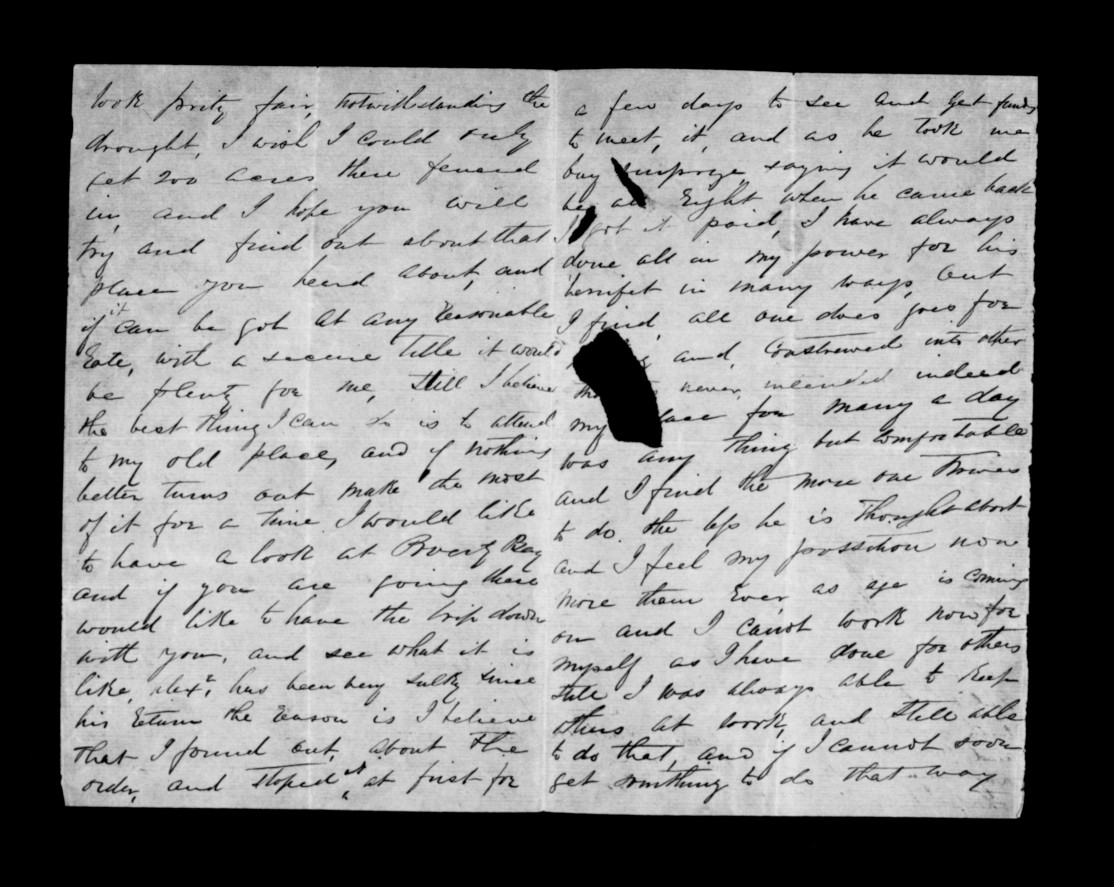 look prity fair, notwithstanding the
drought, I wish I could only
get 200 acres there fenced
in, and I hope you will
try and find out about that
place you heard about, and
if it can be got at any Reasonable
Rate, with a secure title it would
be plenty for me, Still I believe
the best thing I can do is to attend
to my old place, and if nothing
better turns out make the most
of it for a time. I would like
to have a look at Poverty Bay
and if you are going there
would like to have the trip down
with you, and see what it is
like, Alexr. has been very sulky since
his Return the Reason is I believe
that I found out, about the
order, and stoped it, at first for
a few days to see and get funds
to meet, it, and as he took me
by surprize, saying it would
be all Right when he came back
I got it paid, I have always
done all in my power for his
benifet in many ways, but
I find, all one does goes for
and, Construed into other
never, intended indeed
my place for many a day
was any thing but comfortable
and I find the more one
to do. the less he is Thought about
and I feel my possition now
more them Ever, as age is coming
on and I canot work now for
myself as I have done for others
still I was always able to Keep
others at work, and still able
to do that, and if I cannot soon
get somthing to do that way